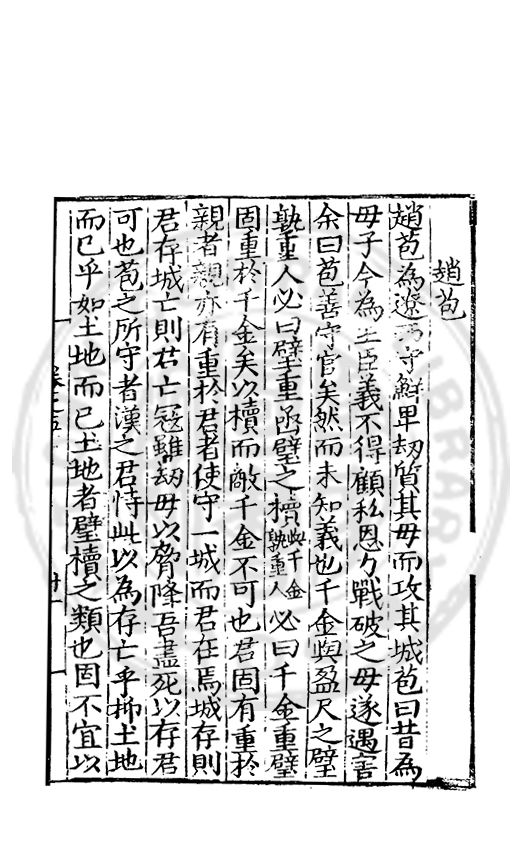 趙苞
趙苞為遼西守鮮卑刼質其母而攻其城苞曰昔為
母子今為王臣義不得顧私恩力戰破之母遂遇害
余曰苞善守官矣然而未知義也千金與盈尺之璧
孰重人必曰璧重函璧之櫝與千金孰重人必曰千金重璧
固重於千金矣以櫝而敵千金不可也君固有重於
親者親亦有重於君者使守一城而君在焉城存則
君存城亡則君亡寇雖刼母以脅降吾盡死以存君
可也苞之所守者漢之君恃此以為存亡乎抑土地
而已乎如土地而已土地者璧櫝之類也固不宜以